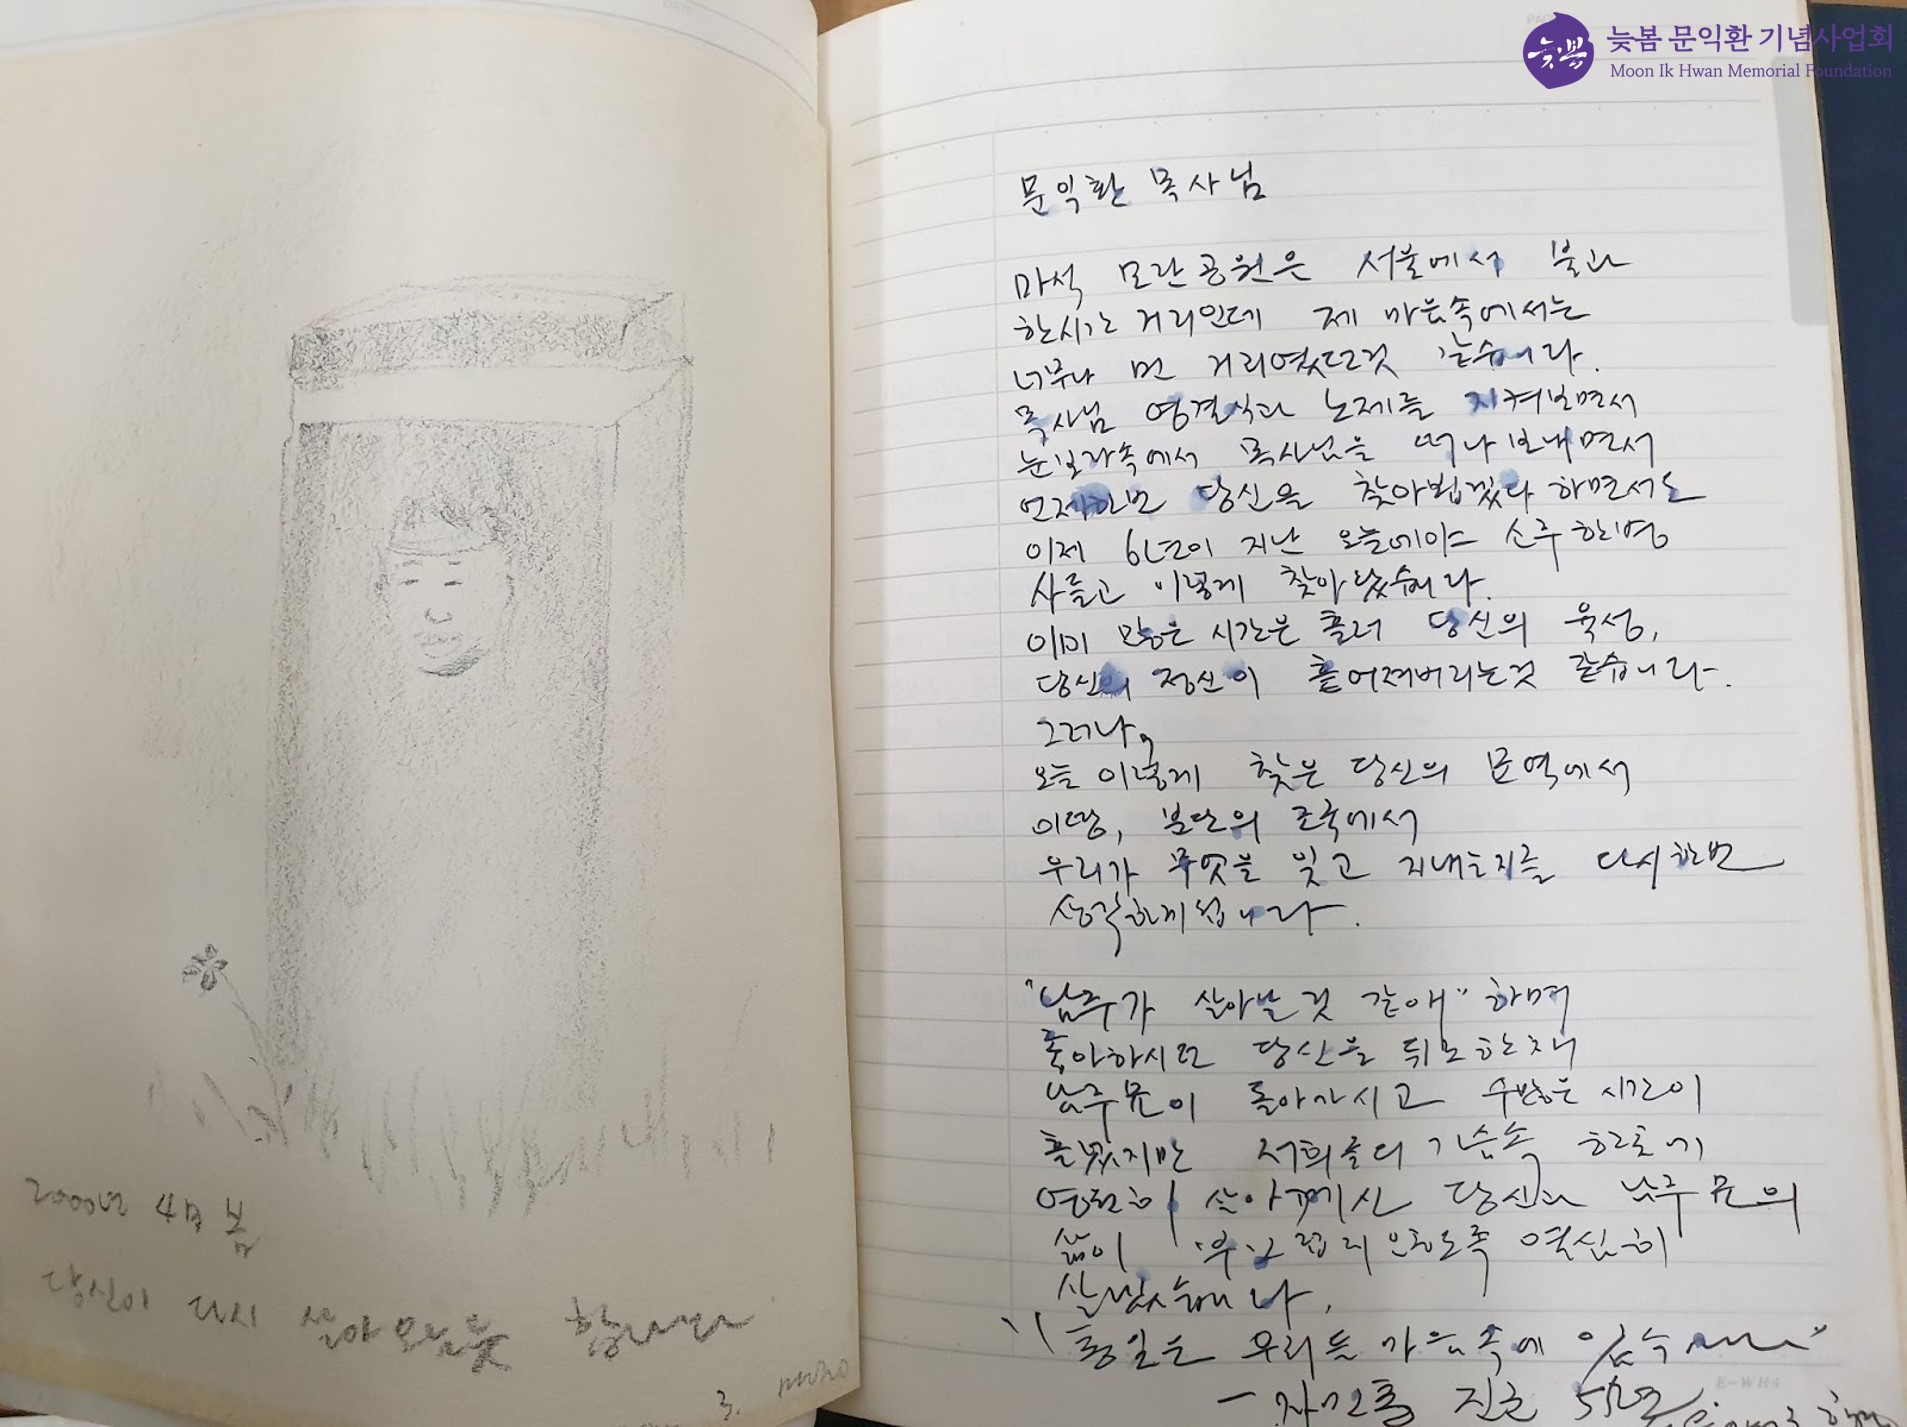 늦봄 문익환 기념사업회
Moon Ik Hwan Memorial Foundation
늦봄
2000년 4월 봄
당신이 다시 살아오는듯 합니다
문익환 목사님
마석 모란공원은 서울에서 불과
한시간 거리인데 제 마음속에서는
너무나 먼 거리였던것 같습니다.
목사님 영결식과 노제를 지켜보면서
눈보라속에서 목사님을 떠나보내면서
언제한번 당신을 찾아뵙겠다 하면서도
이제 6년이 지난 오늘에야 소주한병
사들고 이렇게 찾아왔습니다.
이미 많은 시간은 흘러 당신의 육성,
당신의 정신이 흩어져버리는것 같습니다.
그러나,
오늘 이렇게 찾은 당신의 묘역에서
이땅, 분단의 조국에서
우리가 무엇을 잊고 지내는지를 다시한번
생각하게됩니다.
"남주가 살아날것 같애" 하며
좋아하시던 당신을 뒤로한채
남주형이 돌아가시고 수많은 시간이
흘렀지만 저희들의 가슴속
연연히 살아계신 당신과 남주형의
삶이 부끄럽지 않도록 열심히
살겠습니다.
"통일은 우리들 가음속에
E-WHA